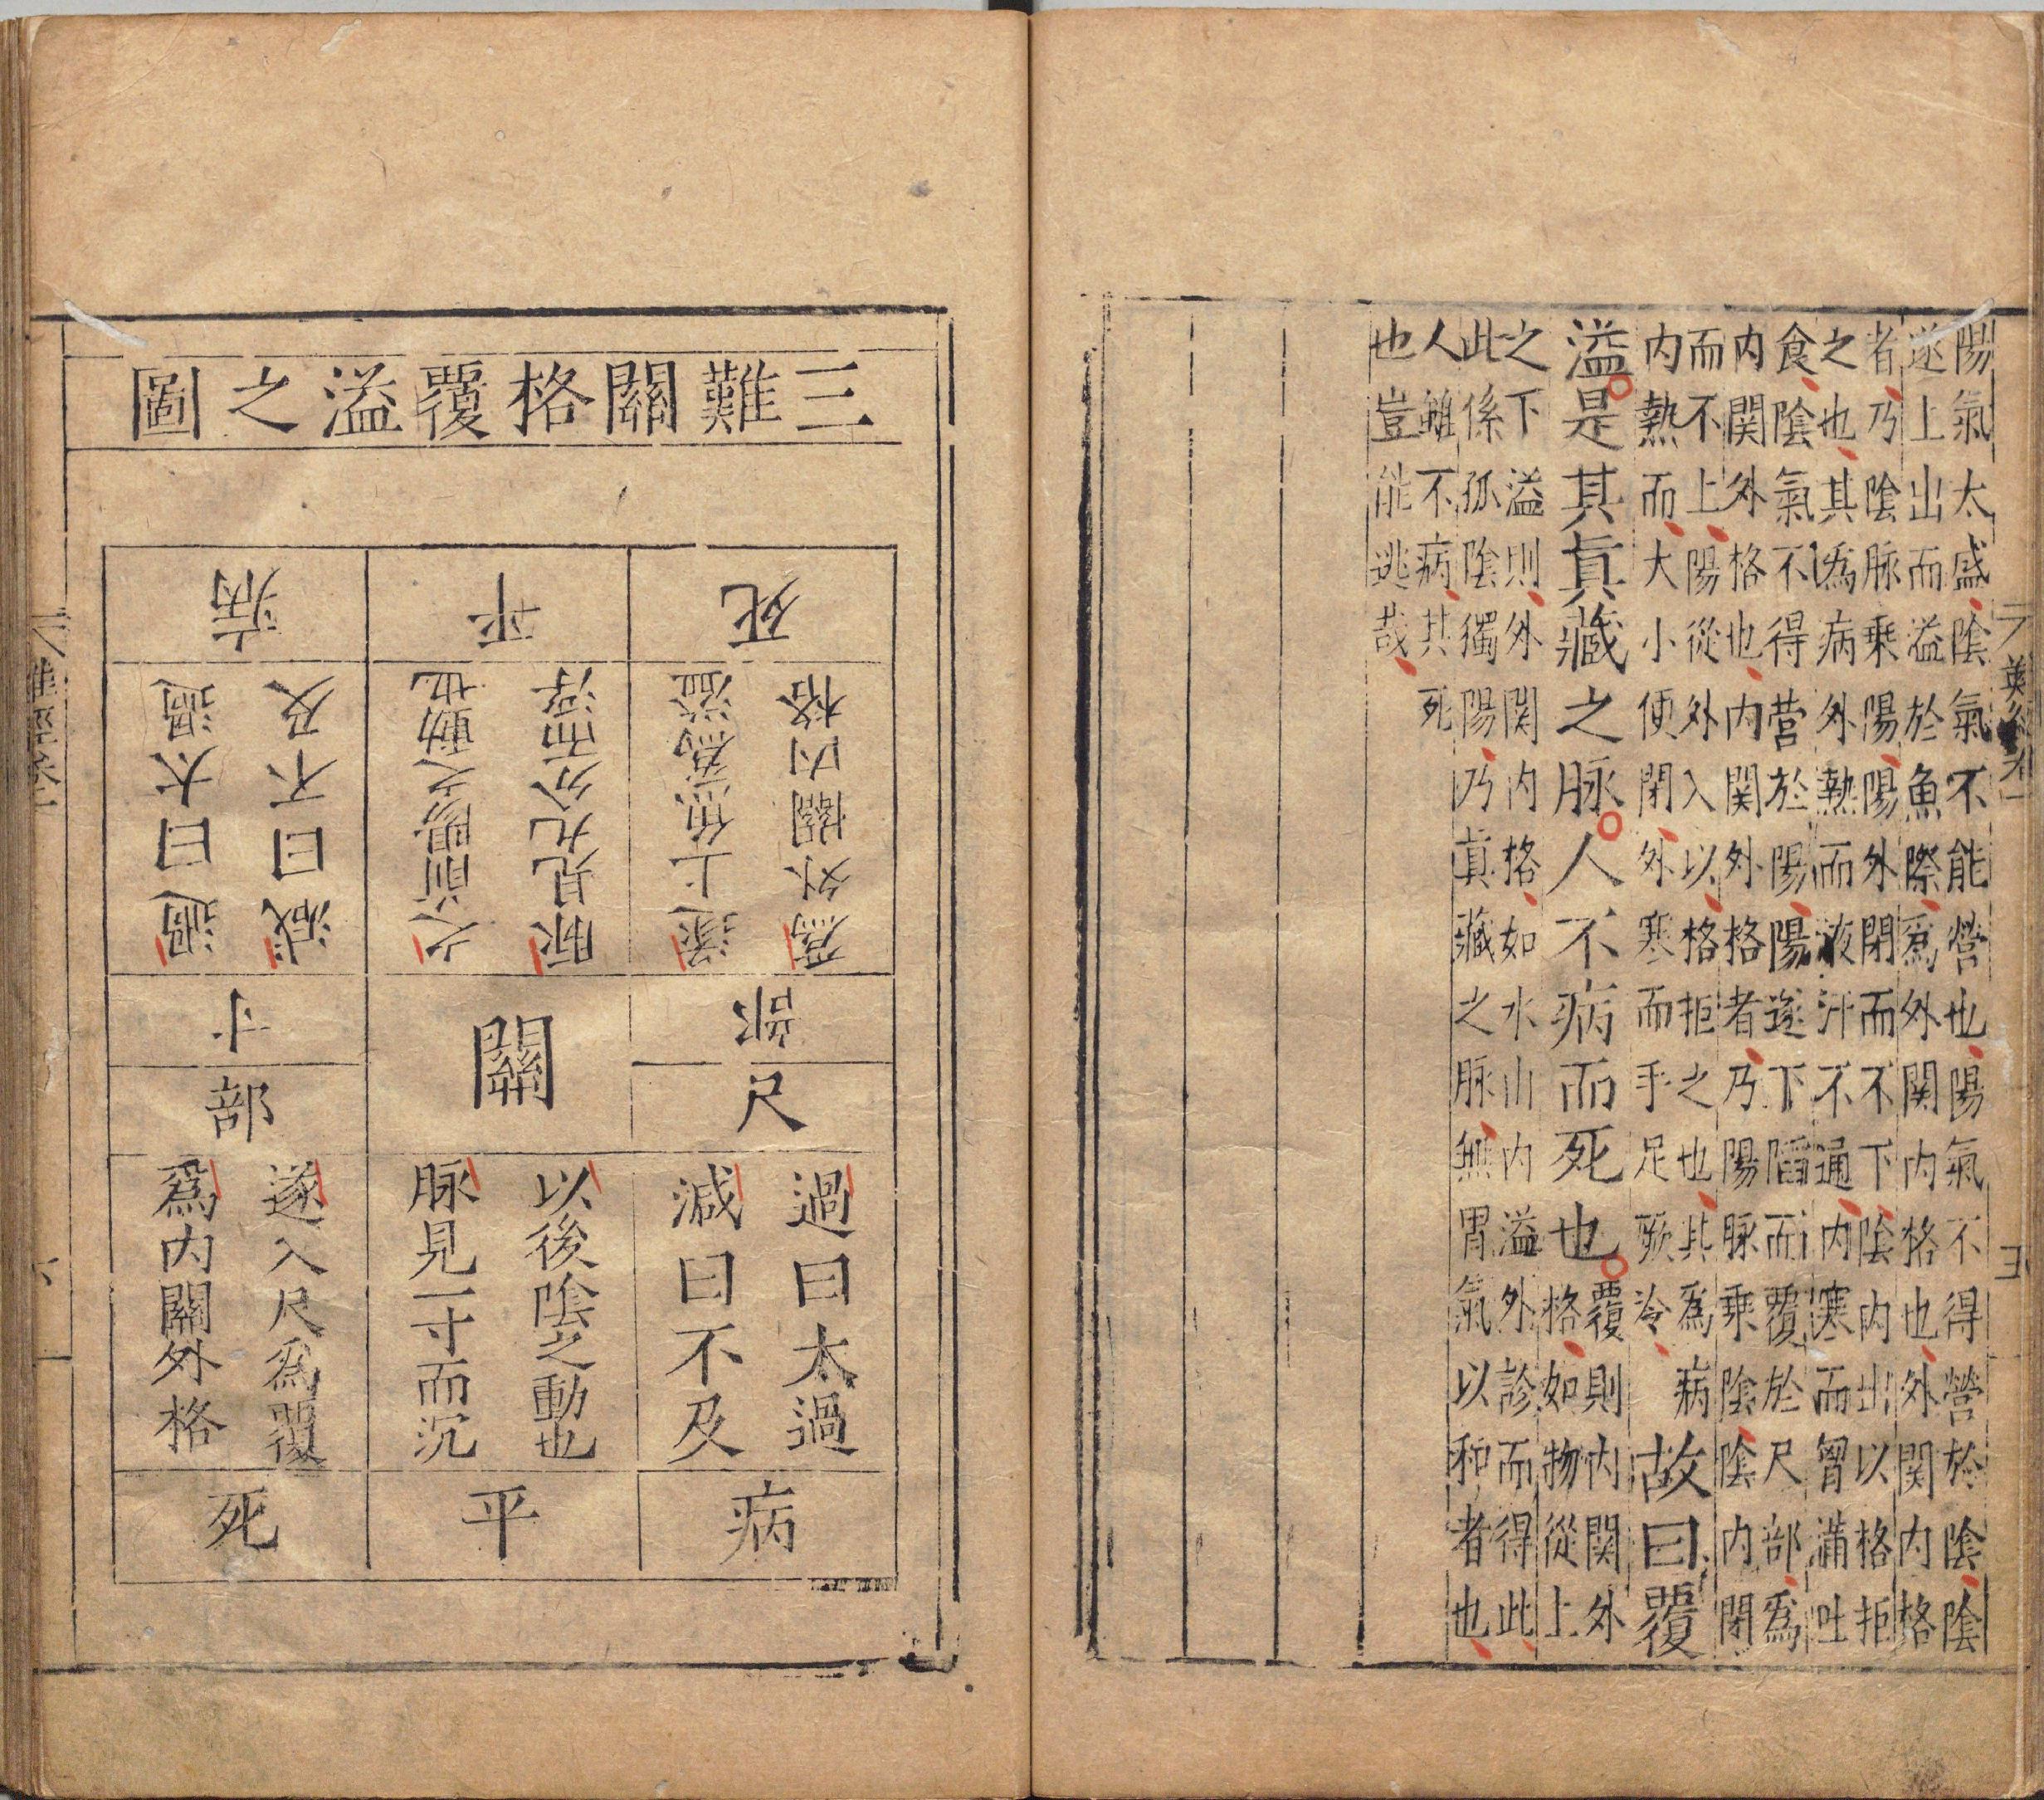 陽氣太盛陰氣不能營也陽氣不得營於陰陰
遂上出而溢於魚際爲外関内格也外関内格
者乃陰脉乗陽陽外閉而不下陰内出以格拒
之也其爲病外熱而液汗不通内寒而胷滿吐
食陰氣不得营於陽陽遂下䧟而覆於尺部爲
内関外格也内関外格者乃陽脉乗陰陰内閉
而不上陽從外入以格拒之也其爲病
内熱而大小便閉外寒而手足厥冷
故曰覆
溢是其真藏之脉人不病而死也
覆則内関外
格如物從上
之下溢則外関内格如水山内溢外診而得此
此係孤陰獨陽乃真藏之脉無胃氣以和者也
人雖不病其死
也豈能逃哉
三難關格覆溢之圖
過曰太過
減曰不及
病
之前陽之動也
脉見九分而浮
平
遂上魚爲溢
爲外關内格
死
寸部
關
尺部
過曰太過
減曰不及
病
以後陰之動也
脉見一寸而沉
平
遂入尺爲覆
爲内關外格
死